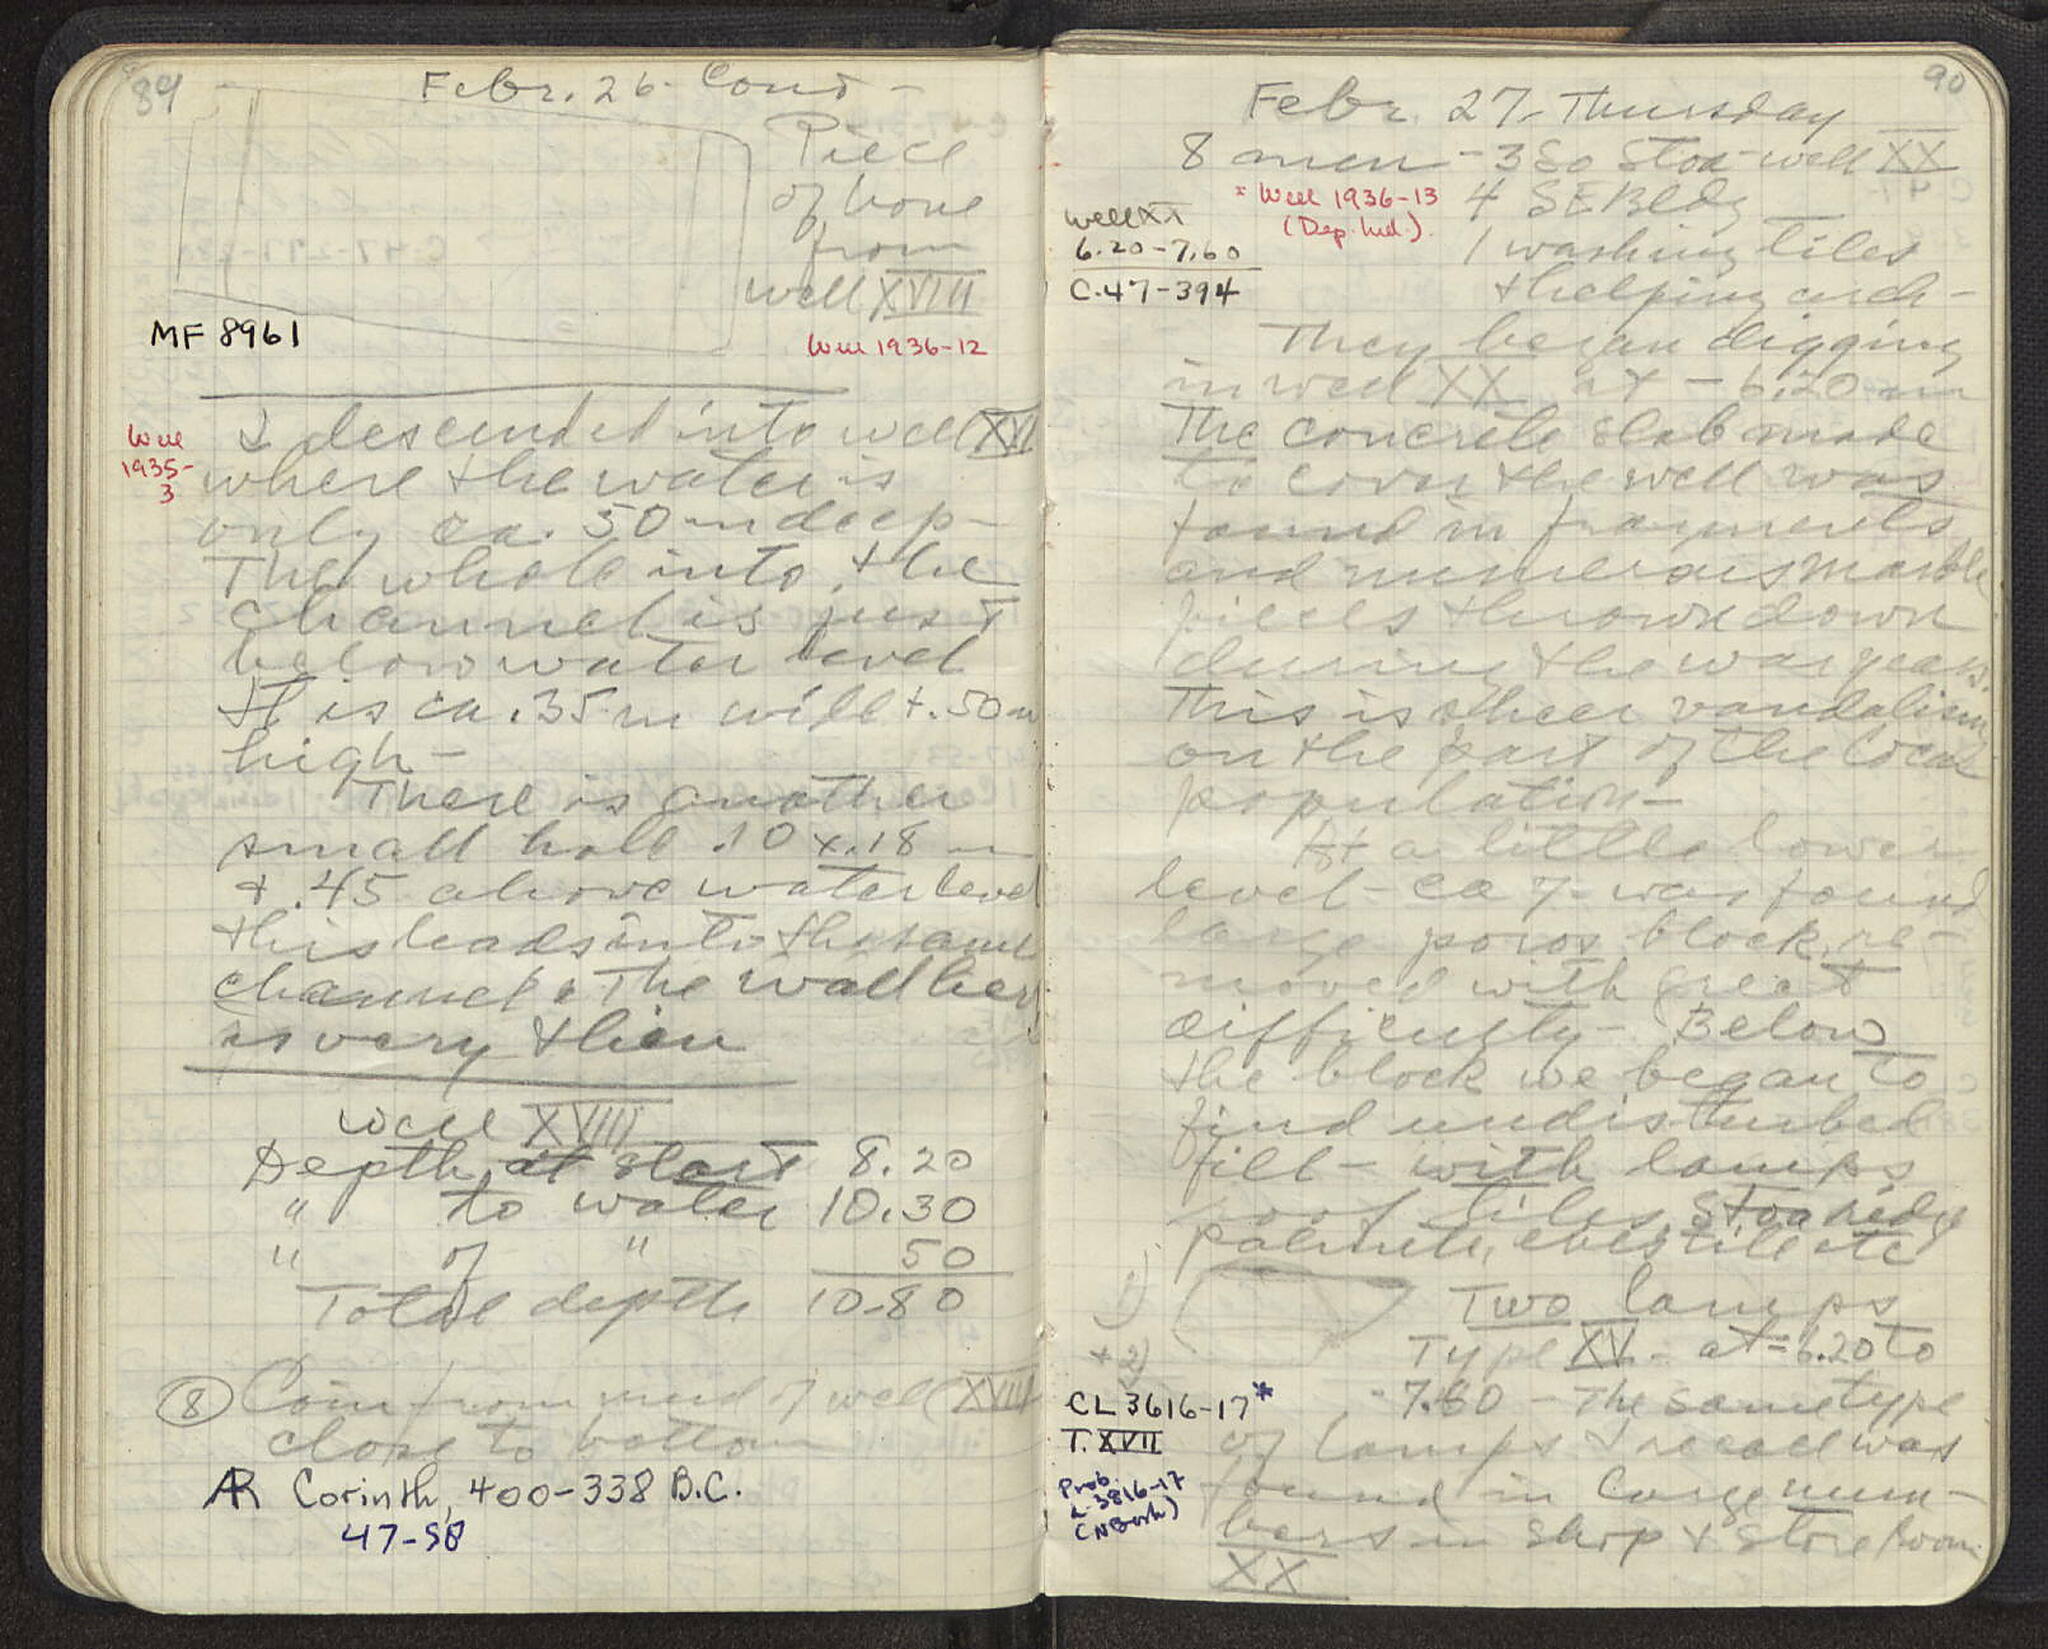 89
Febr. 26. Cont -
Piece
of bone
from
well XVIII
MF 8961
Well 1936-12
Well
1935-
3
I descended into well XVI
where the water is
only ca. 50 m deep -
The whole into the
channel is just
below water level
It is ca .35 m wide + .50 m
high -
There is another
small hole .10 x .18 m
+ .45 above water level
this leads into the same
channel. The wall here
is very thin
Well XVIII
Depth at start 8.20
" to water 10.30
" of " 50
Total depth 10.80
8 Coin from mud of well XVIII
close to bottom
AR Corinth, 400-338 B.C.
47-58
90
Febr. 27. Thursday
8 men - 3 So Stoa - well XX
* Well 1936-13
(Dep. Ind.).
4 SE Bldg
1 washing tiles
+ helping arch -
Well XX
6.20-7.60
C.47-394
They began digging
in well XX at - 6.20 m
The concrete slab made
to cover the well was
found in fragments
and numerous marble
pieces thrown down
during the war years.
This is sheer vandalism
on the part of the local
population -
At a little lower
level - ca 7 - was found
large poros block, re-
moved with great
difficulty - Below
the block we began to
find undisturbed
fill - with lamps
roof tiles, Stoa ridge
palmette, eaves tile etc
1)
+ 2)
Two lamps
Type XVI - at - 6.20 to
- 7.60 - The same type
of lamps I recall was
found in large num-
bers in Shop + Storeroom
XX
CL 3616-17*
T. XVII
Prob.
L-3816-17